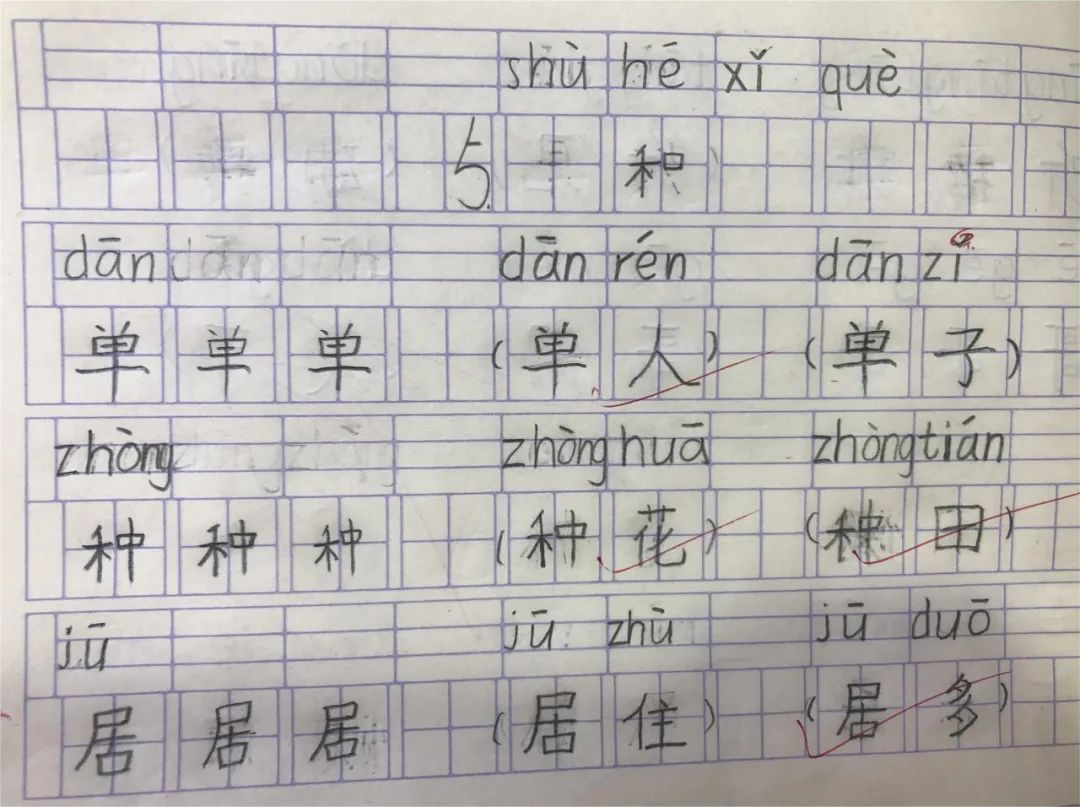 shù hé xǐ què
5. 和
dān dān rén dān zi
单 单 单 (单 人) (单 子)
zhòng zhòng huā zhòng tián
种 种 种 (种 花) (种 田)
jū jū zhù jū duō
居 居 居 (居 住) (居 多)